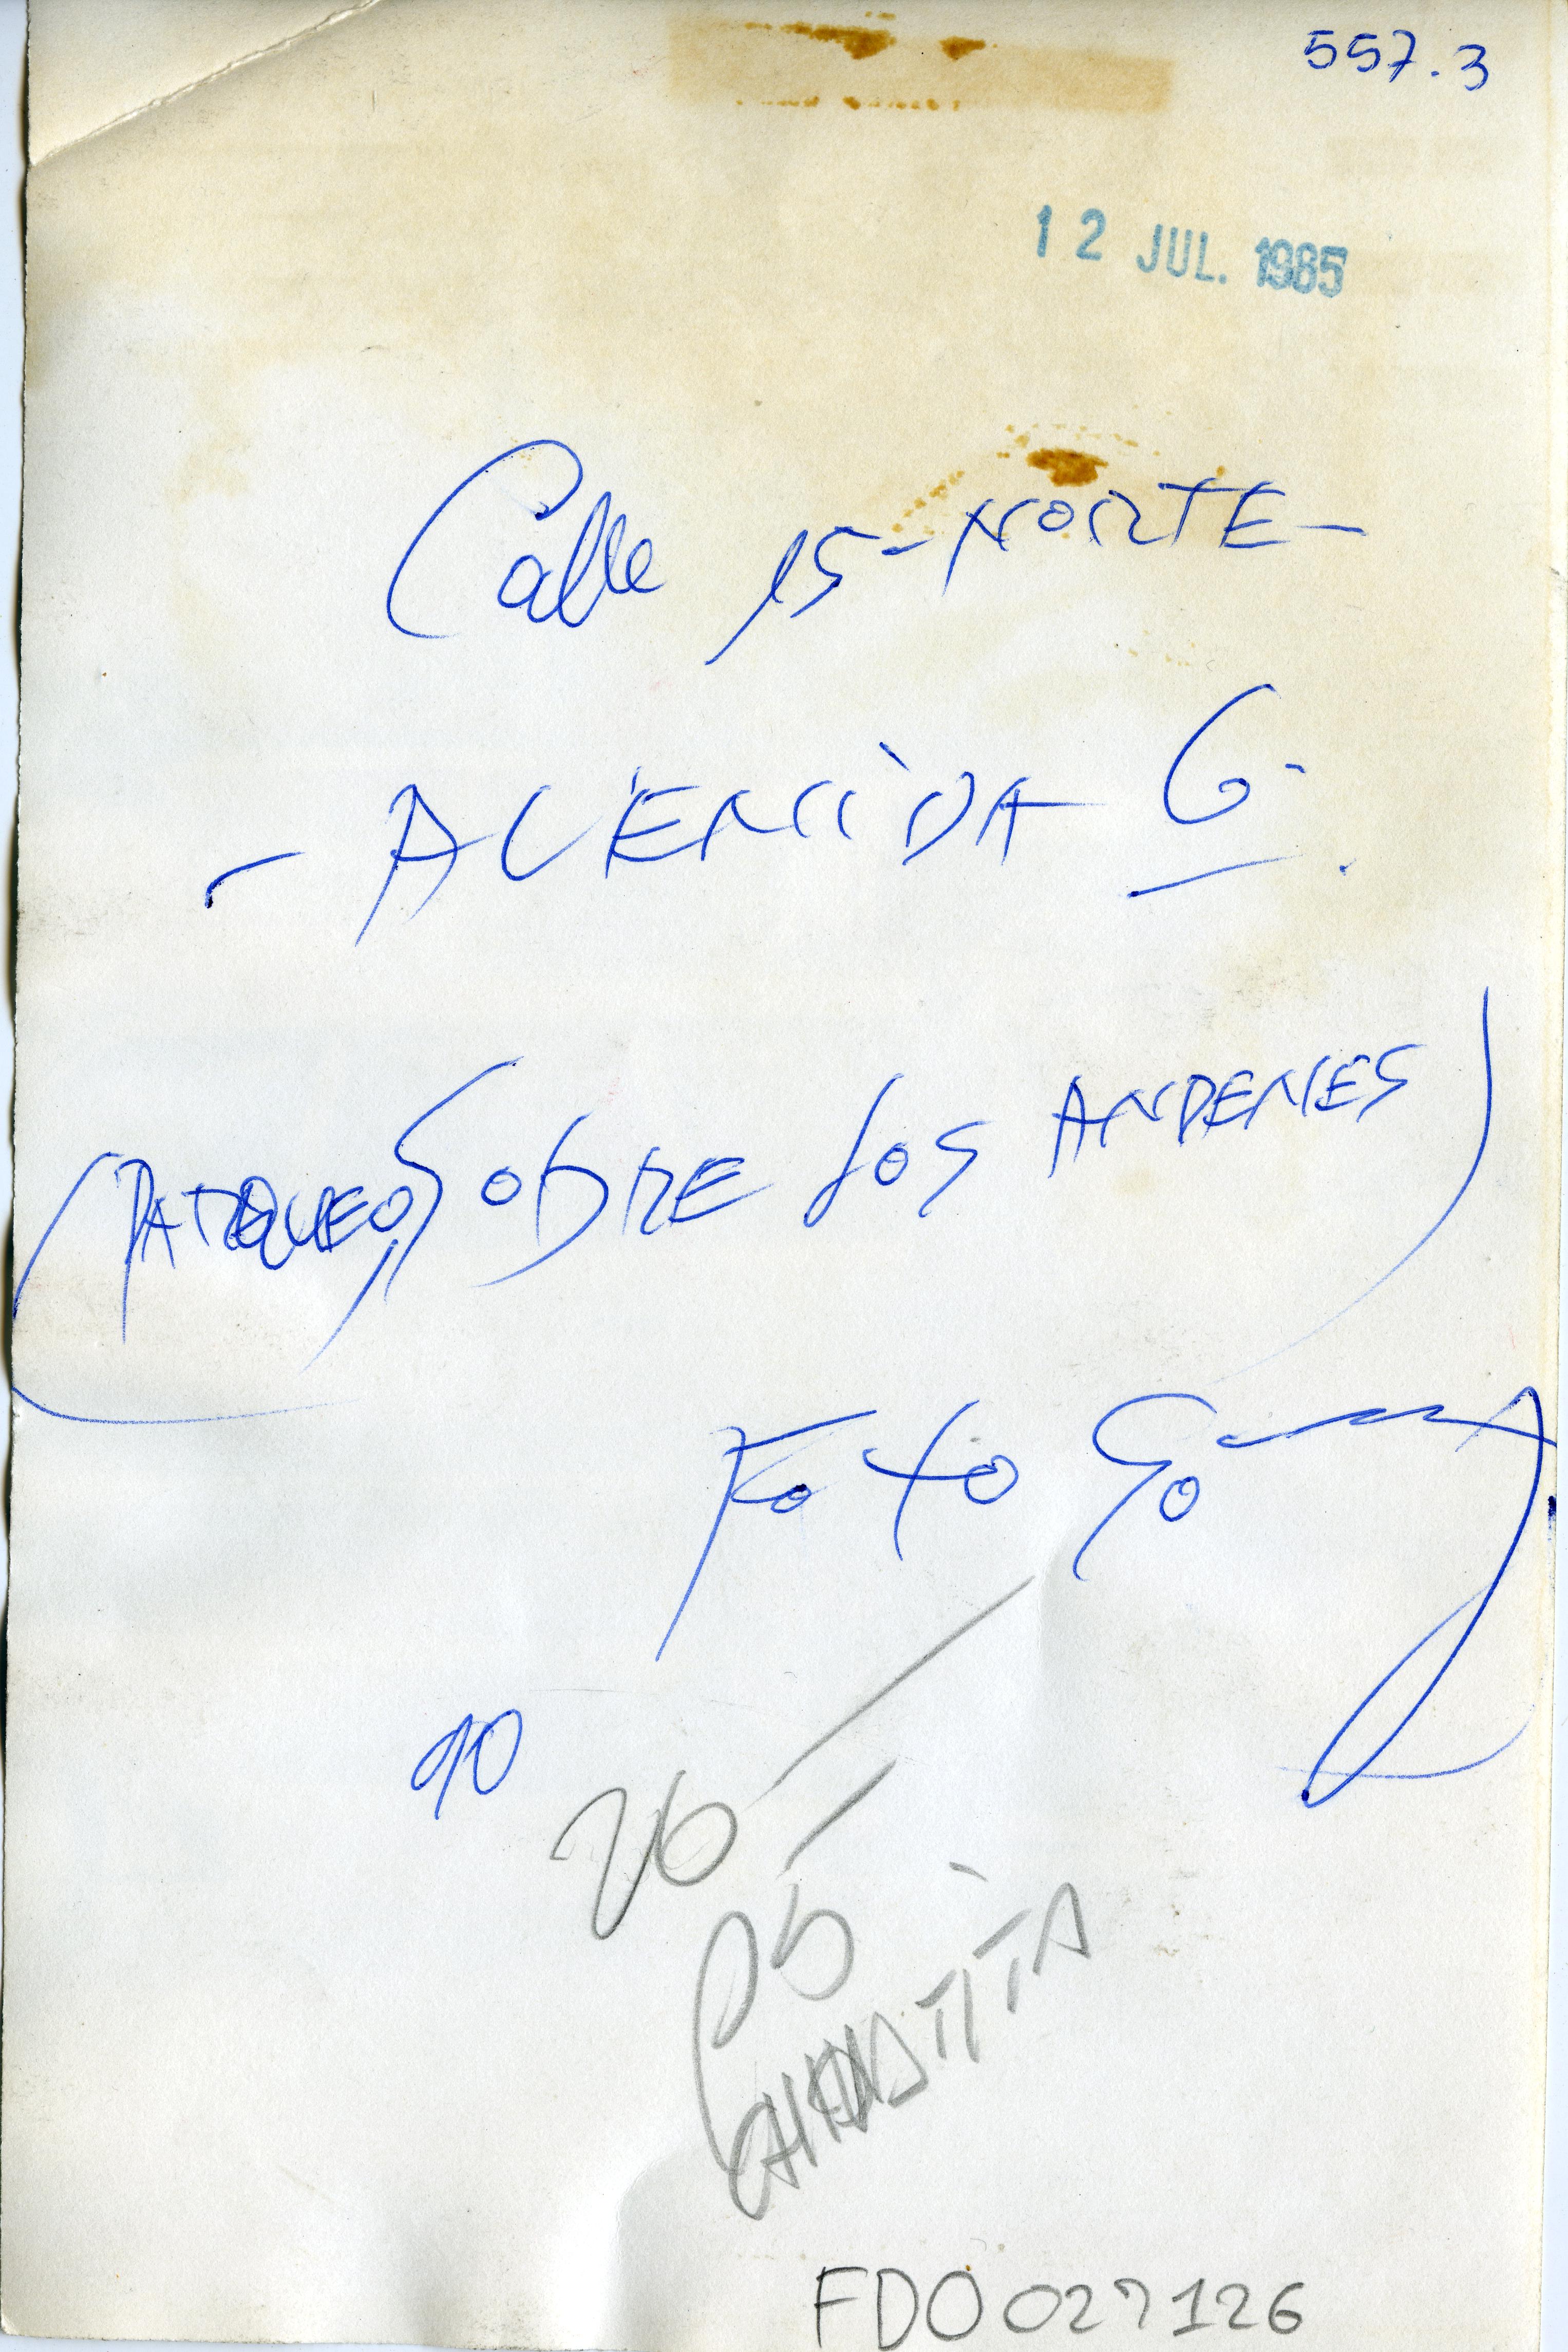 557.3
12 JUL. 1985
Calle 15-NORTE-
- AVENIDA 6-.
(PARQUEO SOBRE LOS ANDENES)
Foto
10
26
FDO027126